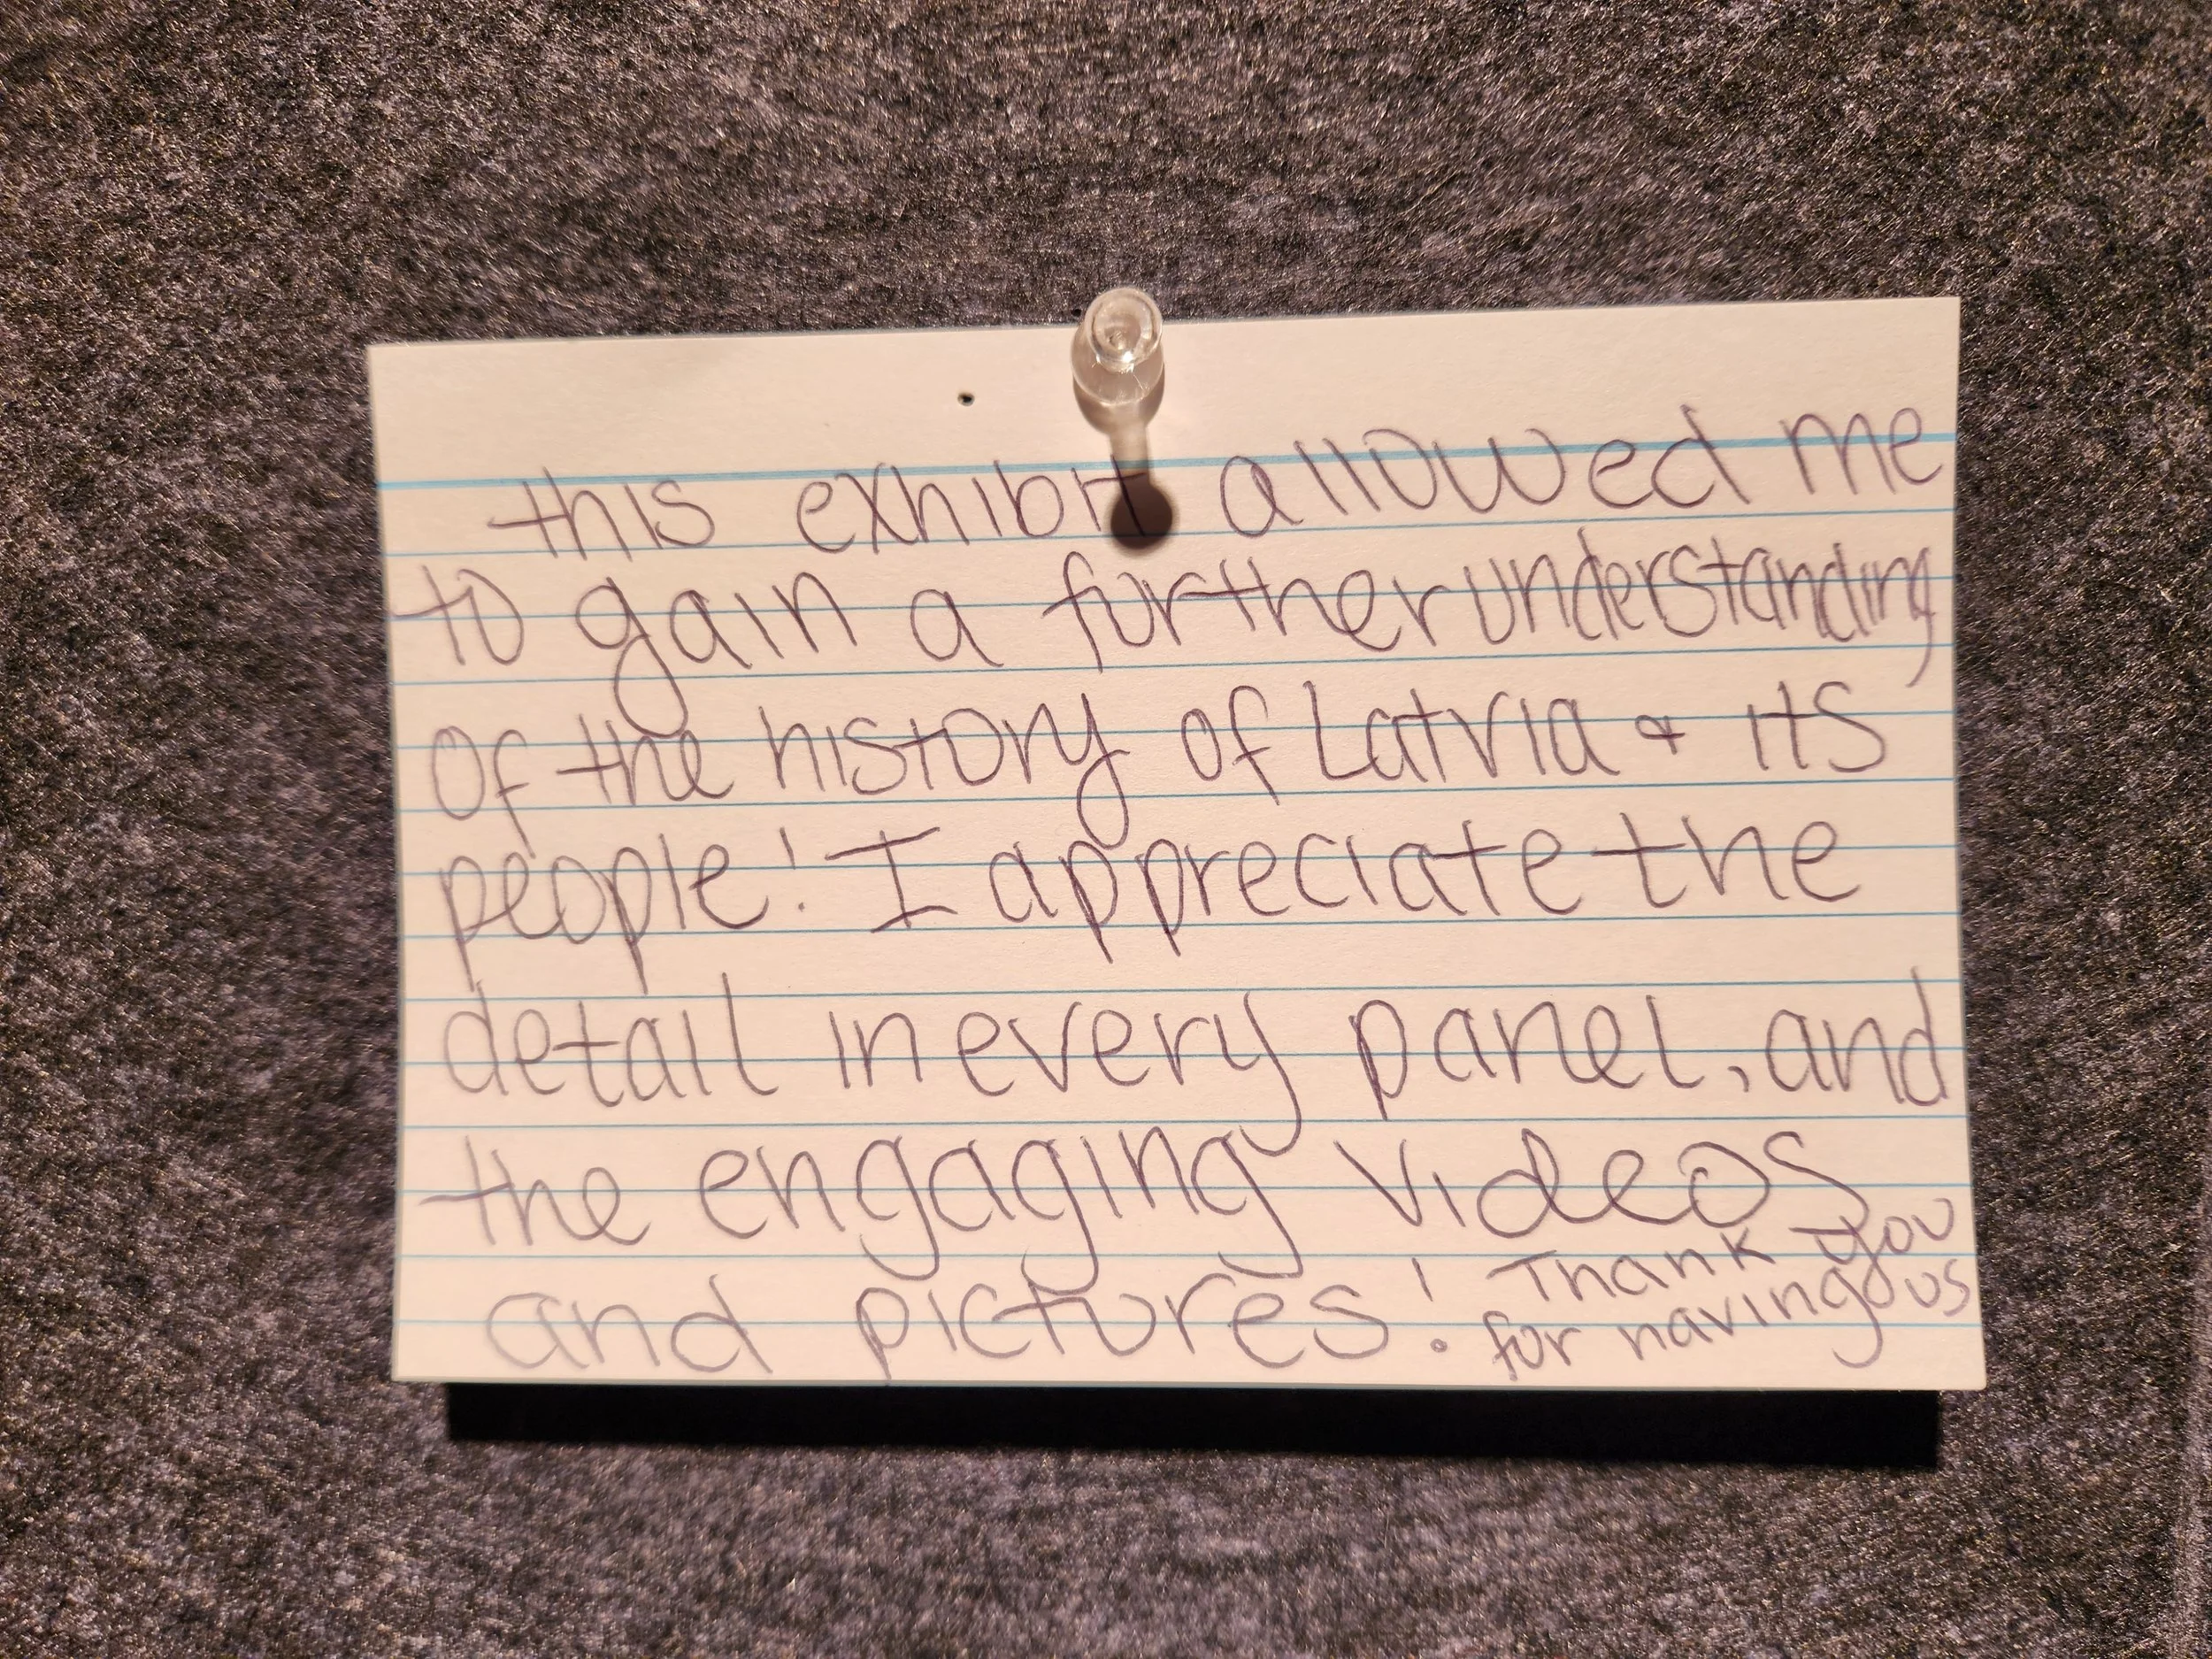 this exhibit allowed me
to gain a further understanding
of the history of Latvia & its
people! I appreciate the
detail in every panel, and
the engaging videos
and pictures! Thank you
for having us